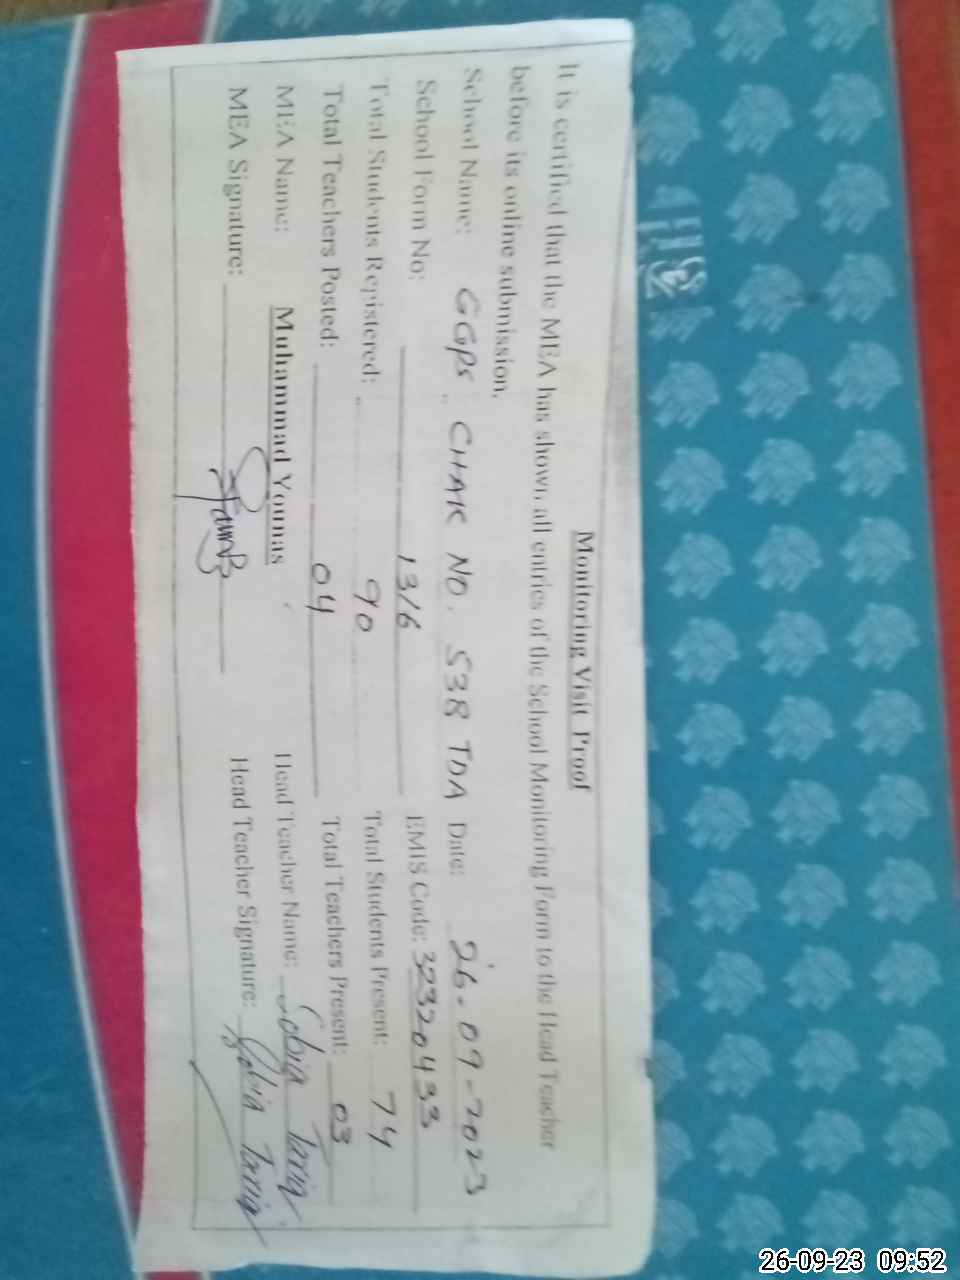 Monitoring Visit Proof
It is certified that the MEA has shown all entries of the School Monitoring Form to the Head Teacher
before its online submission.
School Name: GGPS CHAK NO. 538 TDA Date: 26-09-2023
School Form No: 1316 EMIS Code: 32320433
Total Students Registered: 90 Total Students Present: 74
Total Teachers Posted: 04 Total Teachers Present: 03
MEA Name: Muhammad Younas Head Teacher Name: Sobia Tariq
MEA Signature: Head Teacher Signature: Sobia Tariq
26-09-23 09:52